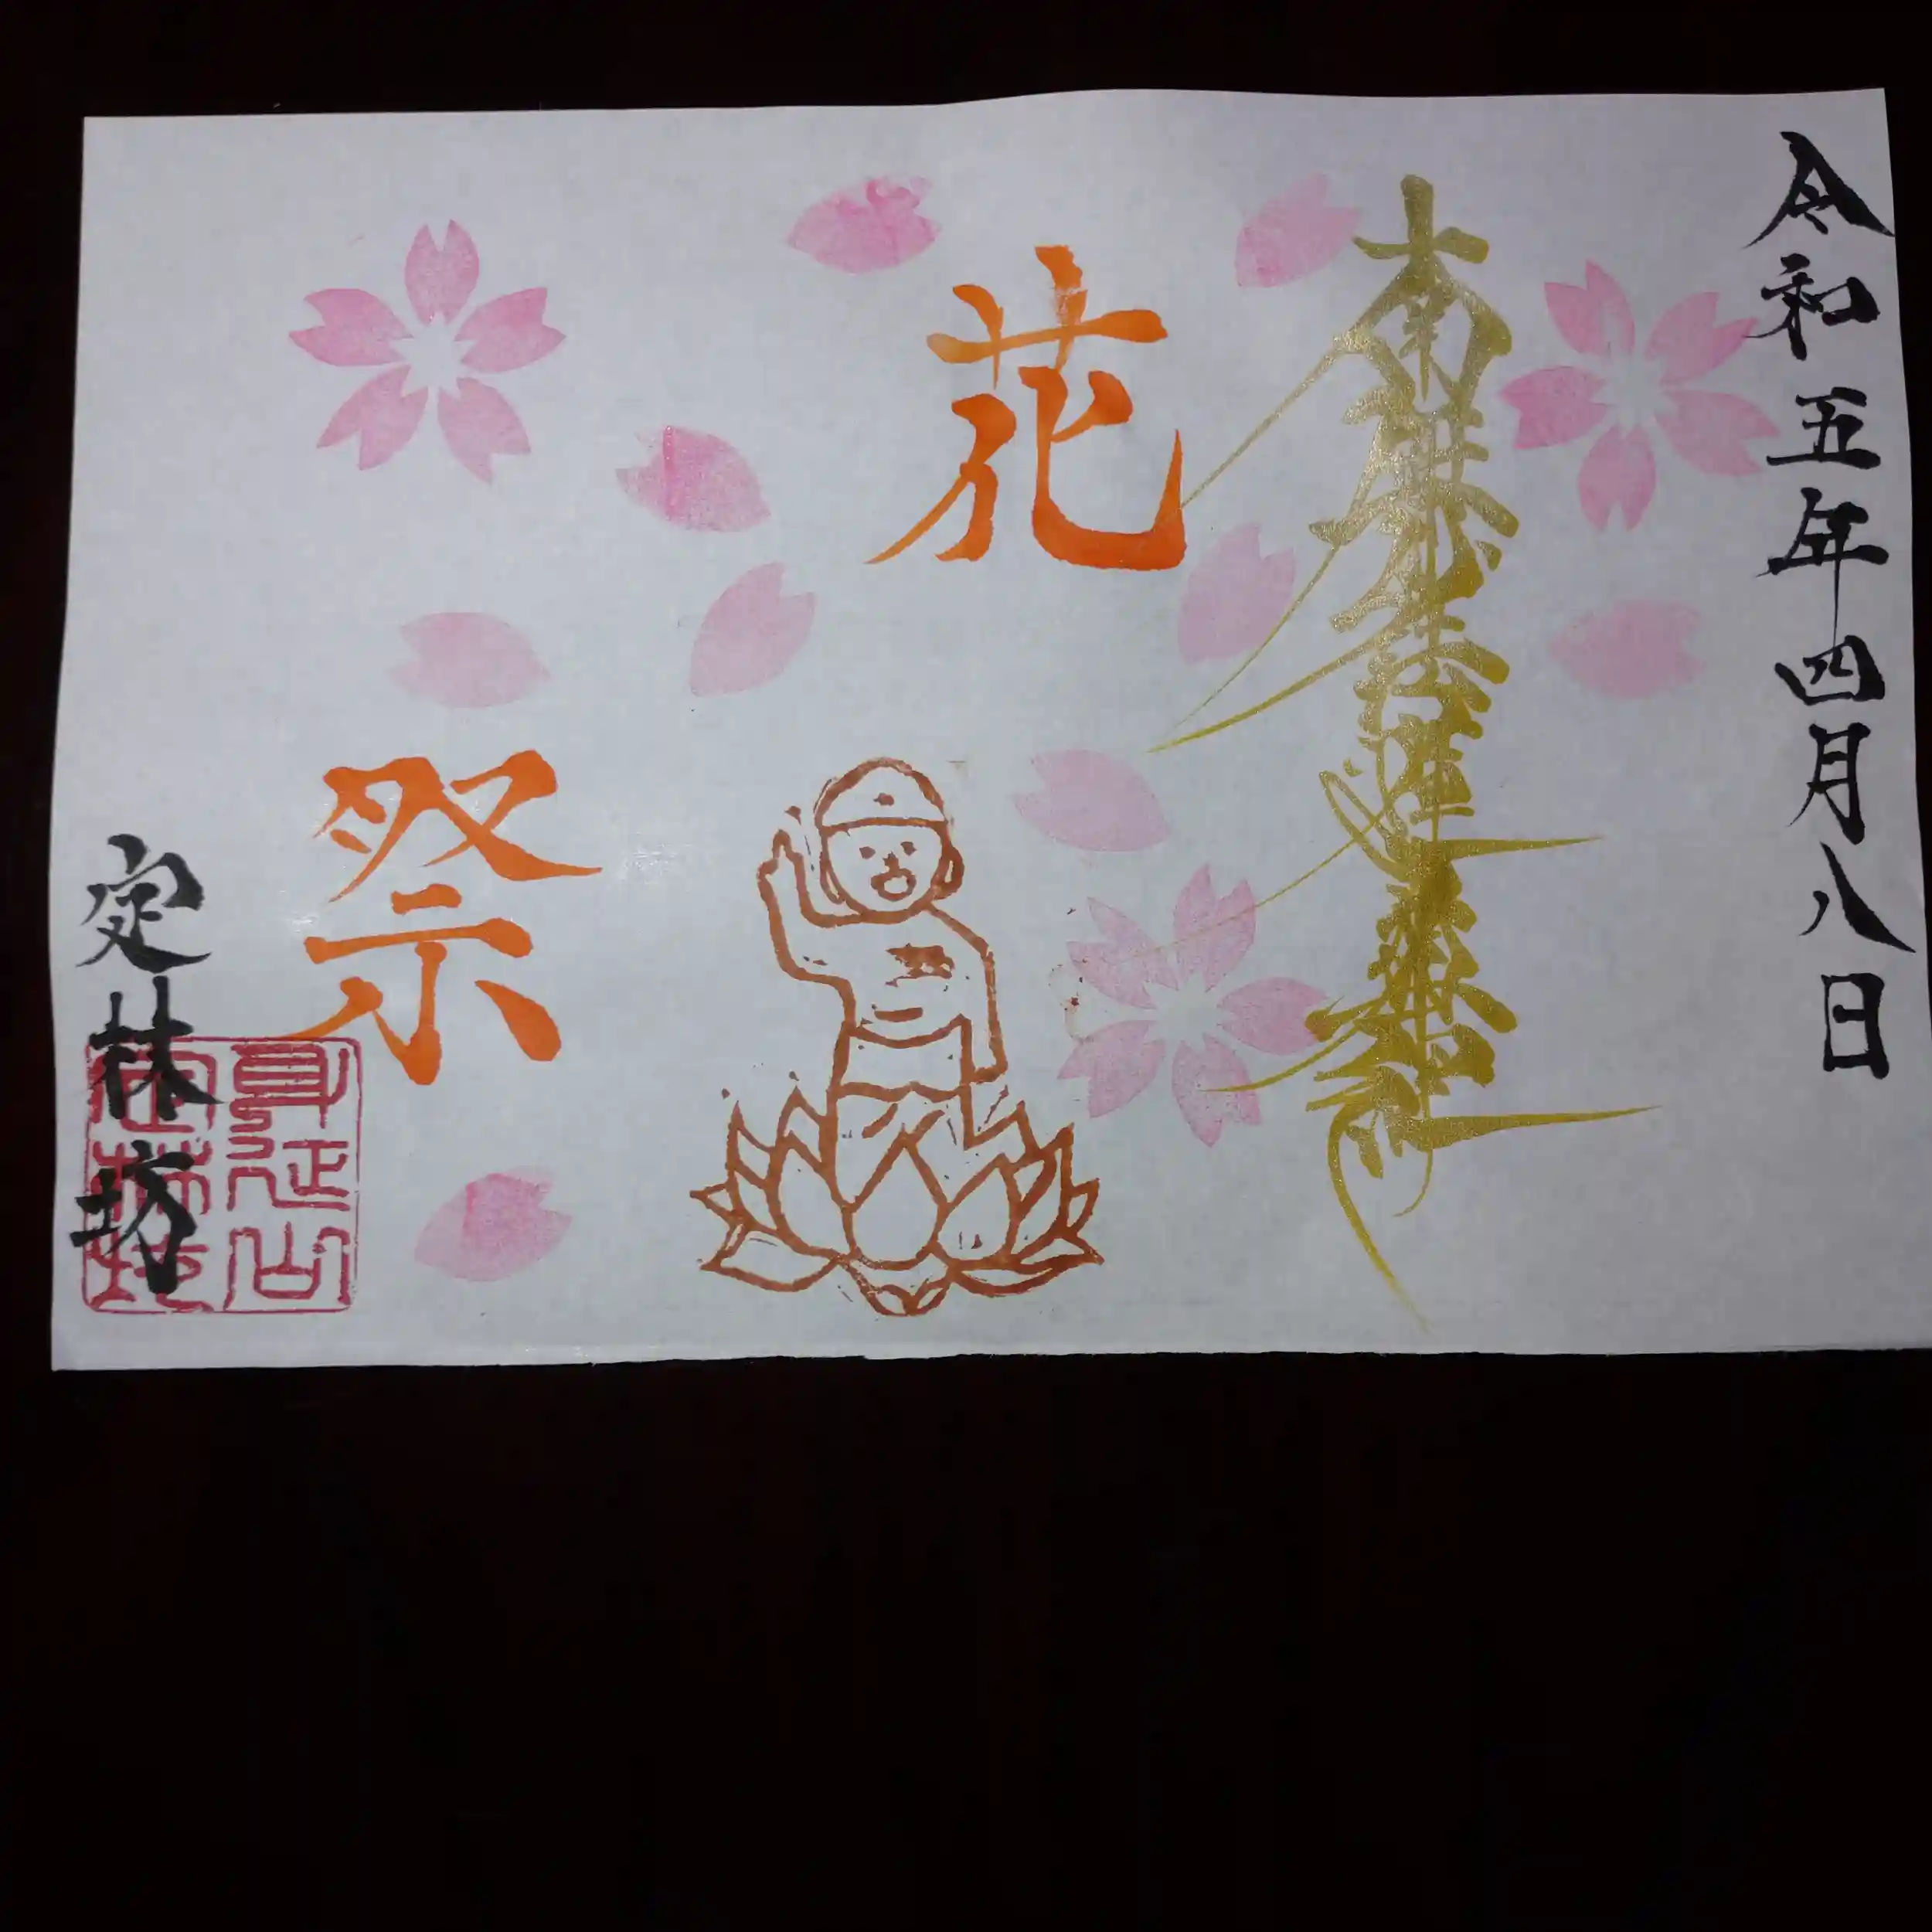 令和五年四月八日
南無妙法蓮華経
花
祭
定林坊
身延山
定林坊